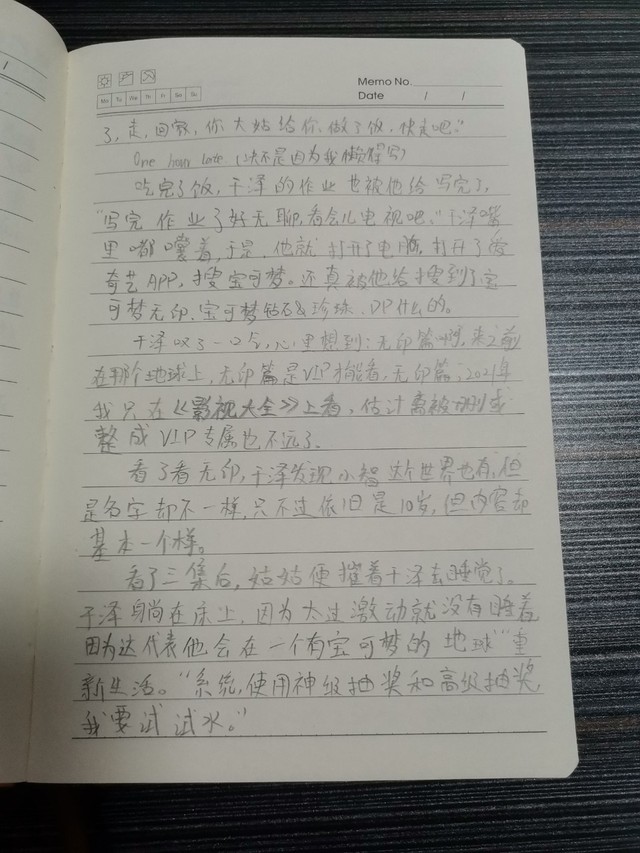 Memo No.
Date / /
Mo Tu We Th Fr Sa Su
了,走,回家,你大姑给你做了饭,快走吧。"
One hour late (决不是因为我懒得写)
吃完了饭,于泽的作业也被他给写完了,
"写完作业了好无聊,看会儿电视吧。"于泽嘴
里嘟囔着,于是,他就打开了电脑,打开了爱
奇艺APP,搜宝可梦。还真被他给搜到了宝
可梦无印、宝可梦钻石&珍珠、DP什么的。
于泽叹了一口气,心里想到:无印篇啊,来之前
在那个地球上,无印篇是VIP才能看,无印篇,2021年
我只在《影视大全》上看,估计离被删或
整成VIP专属也不远了。
看了看无印,于泽发现小智这个世界也有,但
是名字却不一样,只不过依旧是10岁,但内容却
基本一个样。
看了三集后,姑姑便催着于泽去睡觉了。
于泽躺在床上,因为太过激动就没有睡着
因为这代表他会在一个有宝可梦的地球"重
新生活。"系统,使用神级抽奖和高级抽奖,
我要试试水。"